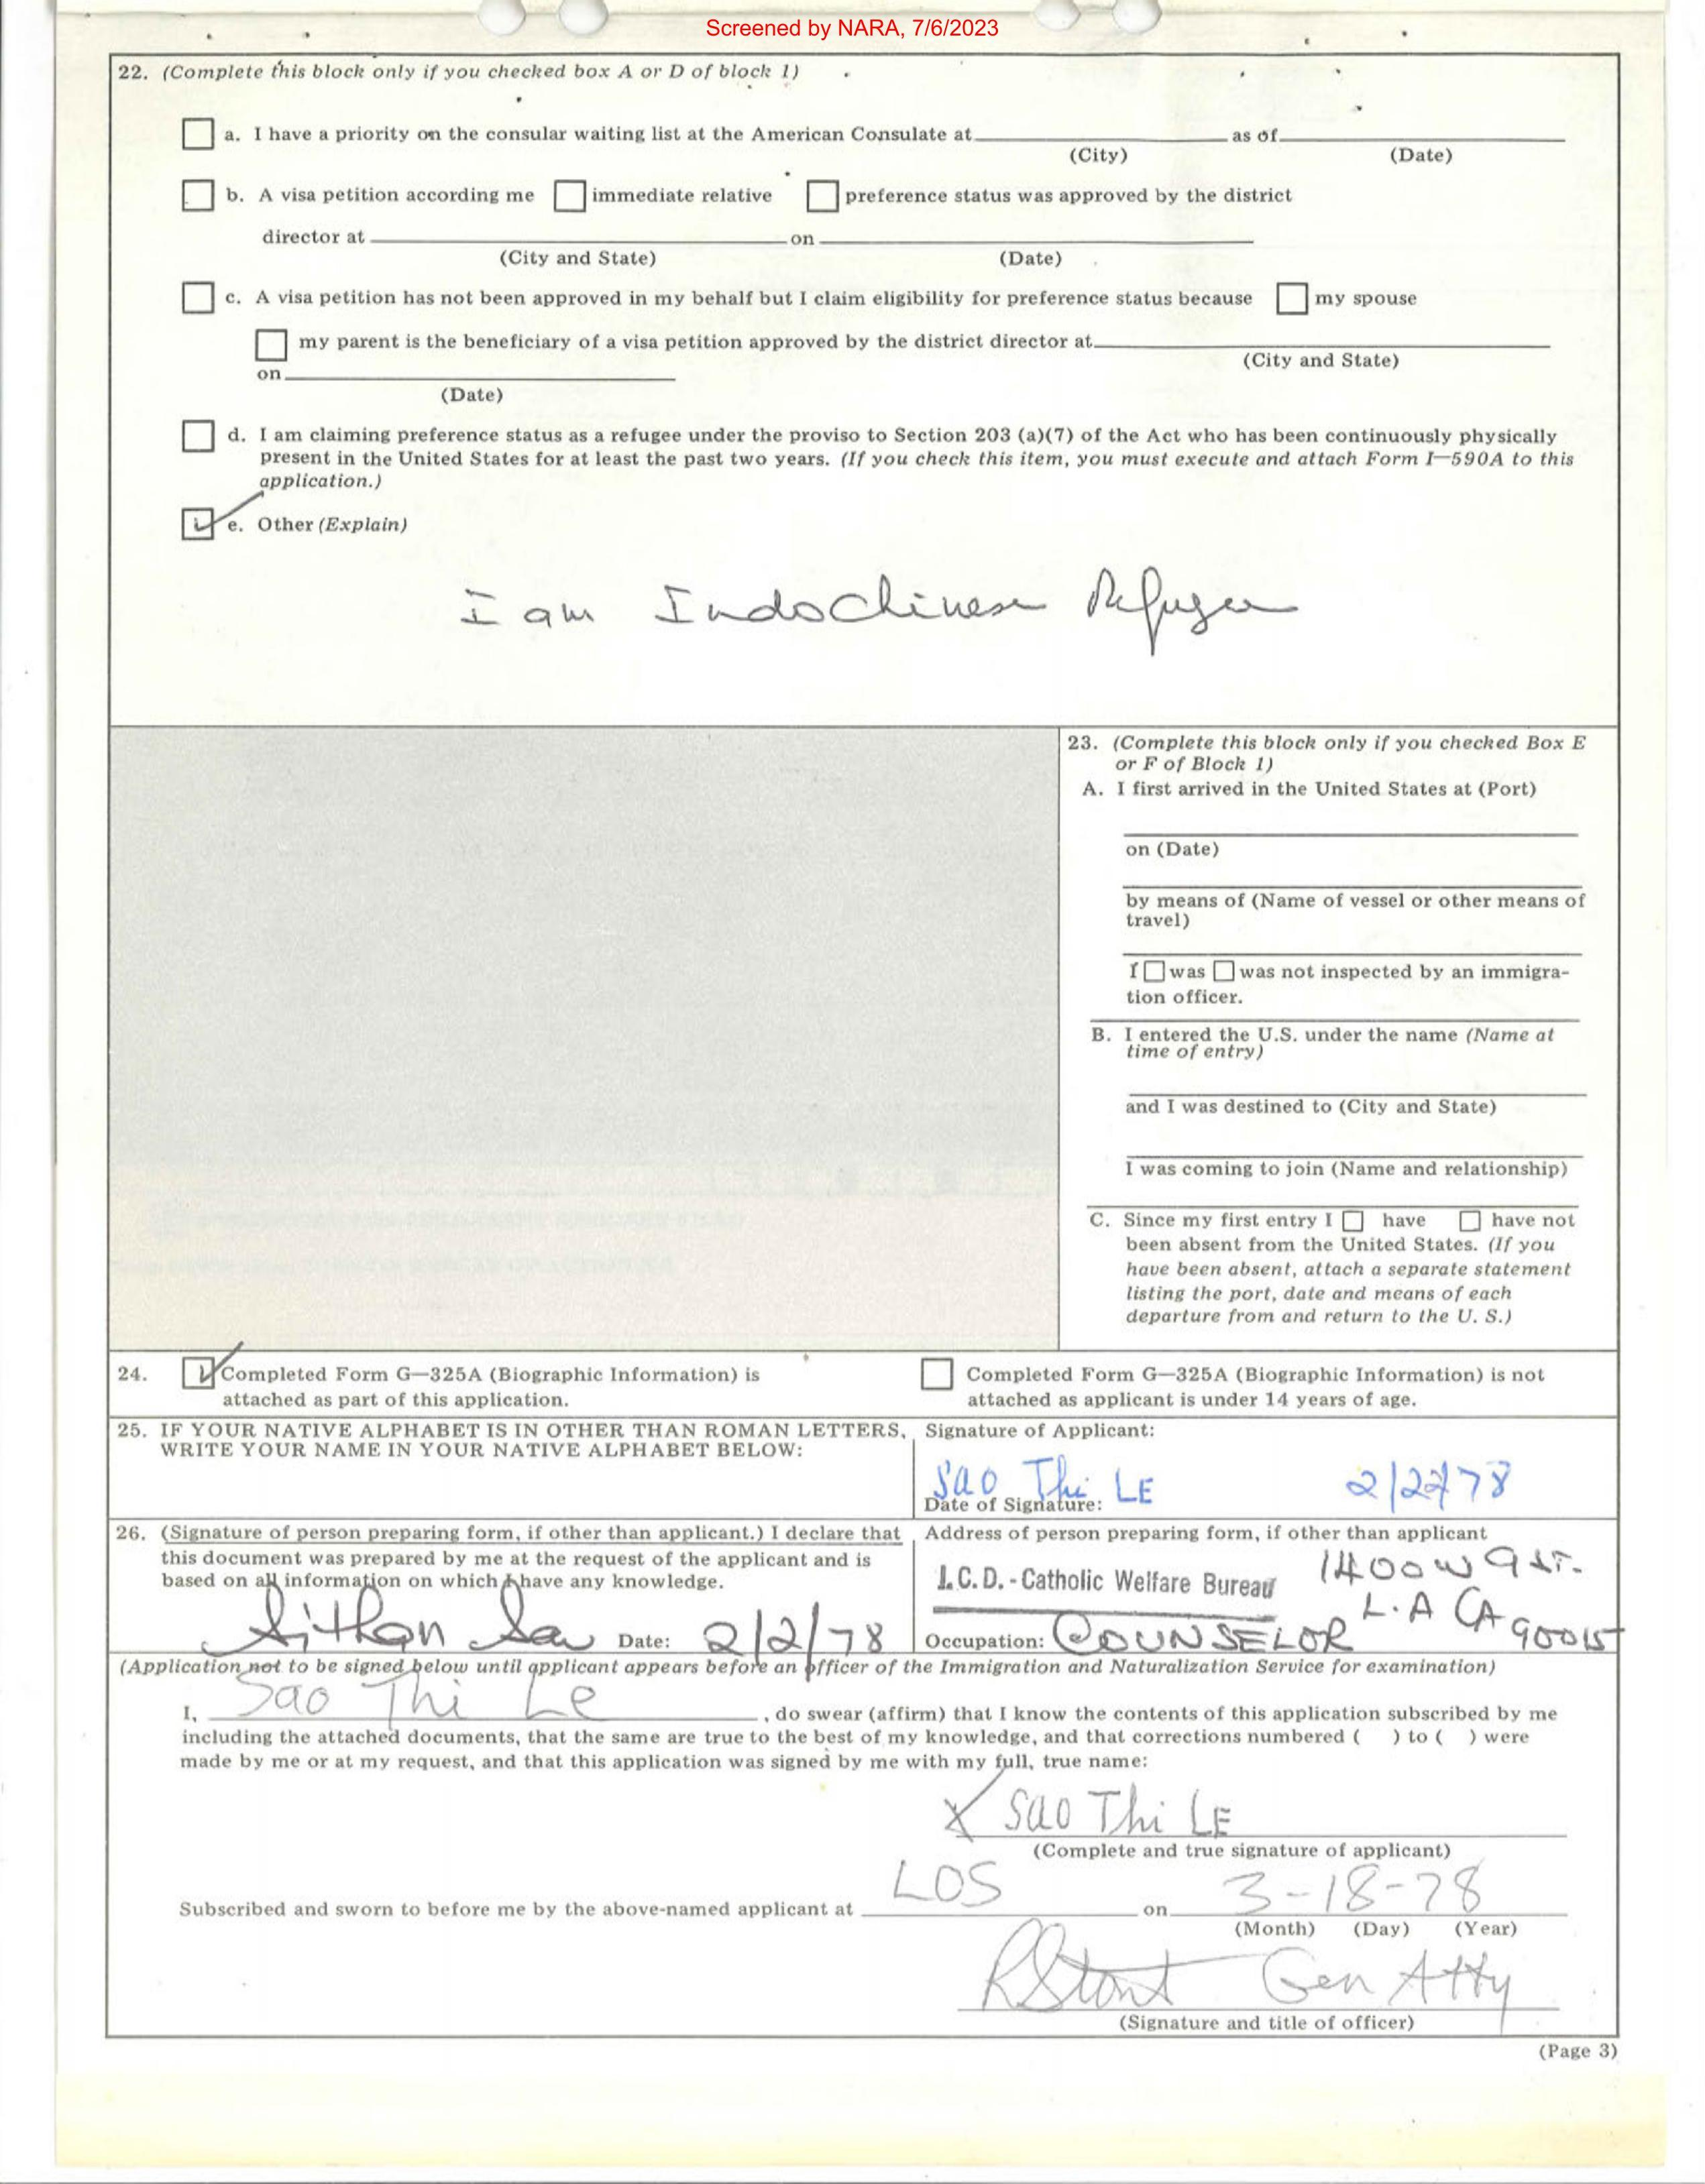 Screened by NARA, 7/6/2023
22. (Complete this block only if you checked box A or D of block 1)
a. I have a priority on the consular waiting list at the American Consulate at as of
(City) (Date)
b. A visa petition according me immediate relative preference status was approved by the district
director at on
(City and State) (Date)
c. A visa petition has not been approved in my behalf but I claim eligibility for preference status because my spouse
my parent is the beneficiary of a visa petition approved by the district director at
(City and State)
on
(Date)
d. I am claiming preference status as a refugee under the proviso to Section 203 (a)(7) of the Act who has been continuously physically
present in the United States for at least the past two years. (If you check this item, you must execute and attach Form I—590A to this
application.)
e. Other (Explain)
I am IndoChinese Refugee
23. (Complete this block only if you checked Box E
or F of Block 1)
A. I first arrived in the United States at (Port)
on (Date)
by means of (Name of vessel or other means of
travel)
I was was not inspected by an immigra-
tion officer.
B. I entered the U.S. under the name (Name at
time of entry)
and I was destined to (City and State)
I was coming to join (Name and relationship)
C. Since my first entry I have have not
been absent from the United States. (If you
have been absent, attach a separate statement
listing the port, date and means of each
departure from and return to the U. S.)
24. Completed Form G—325A (Biographic Information) is
attached as part of this application.
Completed Form G—325A (Biographic Information) is not
attached as applicant is under 14 years of age.
25. IF YOUR NATIVE ALPHABET IS IN OTHER THAN ROMAN LETTERS,
WRITE YOUR NAME IN YOUR NATIVE ALPHABET BELOW:
Signature of Applicant:
Sao Thi LE 2/2/78
Date of Signature:
26. (Signature of person preparing form, if other than applicant.) I declare that
this document was prepared by me at the request of the applicant and is
based on all information on which I have any knowledge.
Sithan Date: 2/2/78
Address of person preparing form, if other than applicant
I.C.D. - Catholic Welfare Bureau 1400 W 9 st.
L.A CA 90015
Occupation: COUNSELOR
(Application not to be signed below until applicant appears before an officer of the Immigration and Naturalization Service for examination)
I, Sao Thi Le , do swear (affirm) that I know the contents of this application subscribed by me
including the attached documents, that the same are true to the best of my knowledge, and that corrections numbered ( ) to ( ) were
made by me or at my request, and that this application was signed by me with my full, true name:
X Sao Thi LE
(Complete and true signature of applicant)
Subscribed and sworn to before me by the above-named applicant at LOS on 3-18-78
(Month) (Day) (Year)
Gen Atty
(Signature and title of officer)
(Page 3)